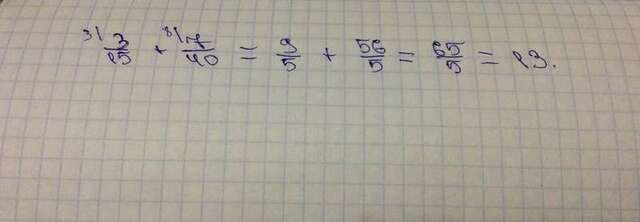 3\ 3/15 + 8\ 7/40 = 9/5 + 56/5 = 65/5 = 13.